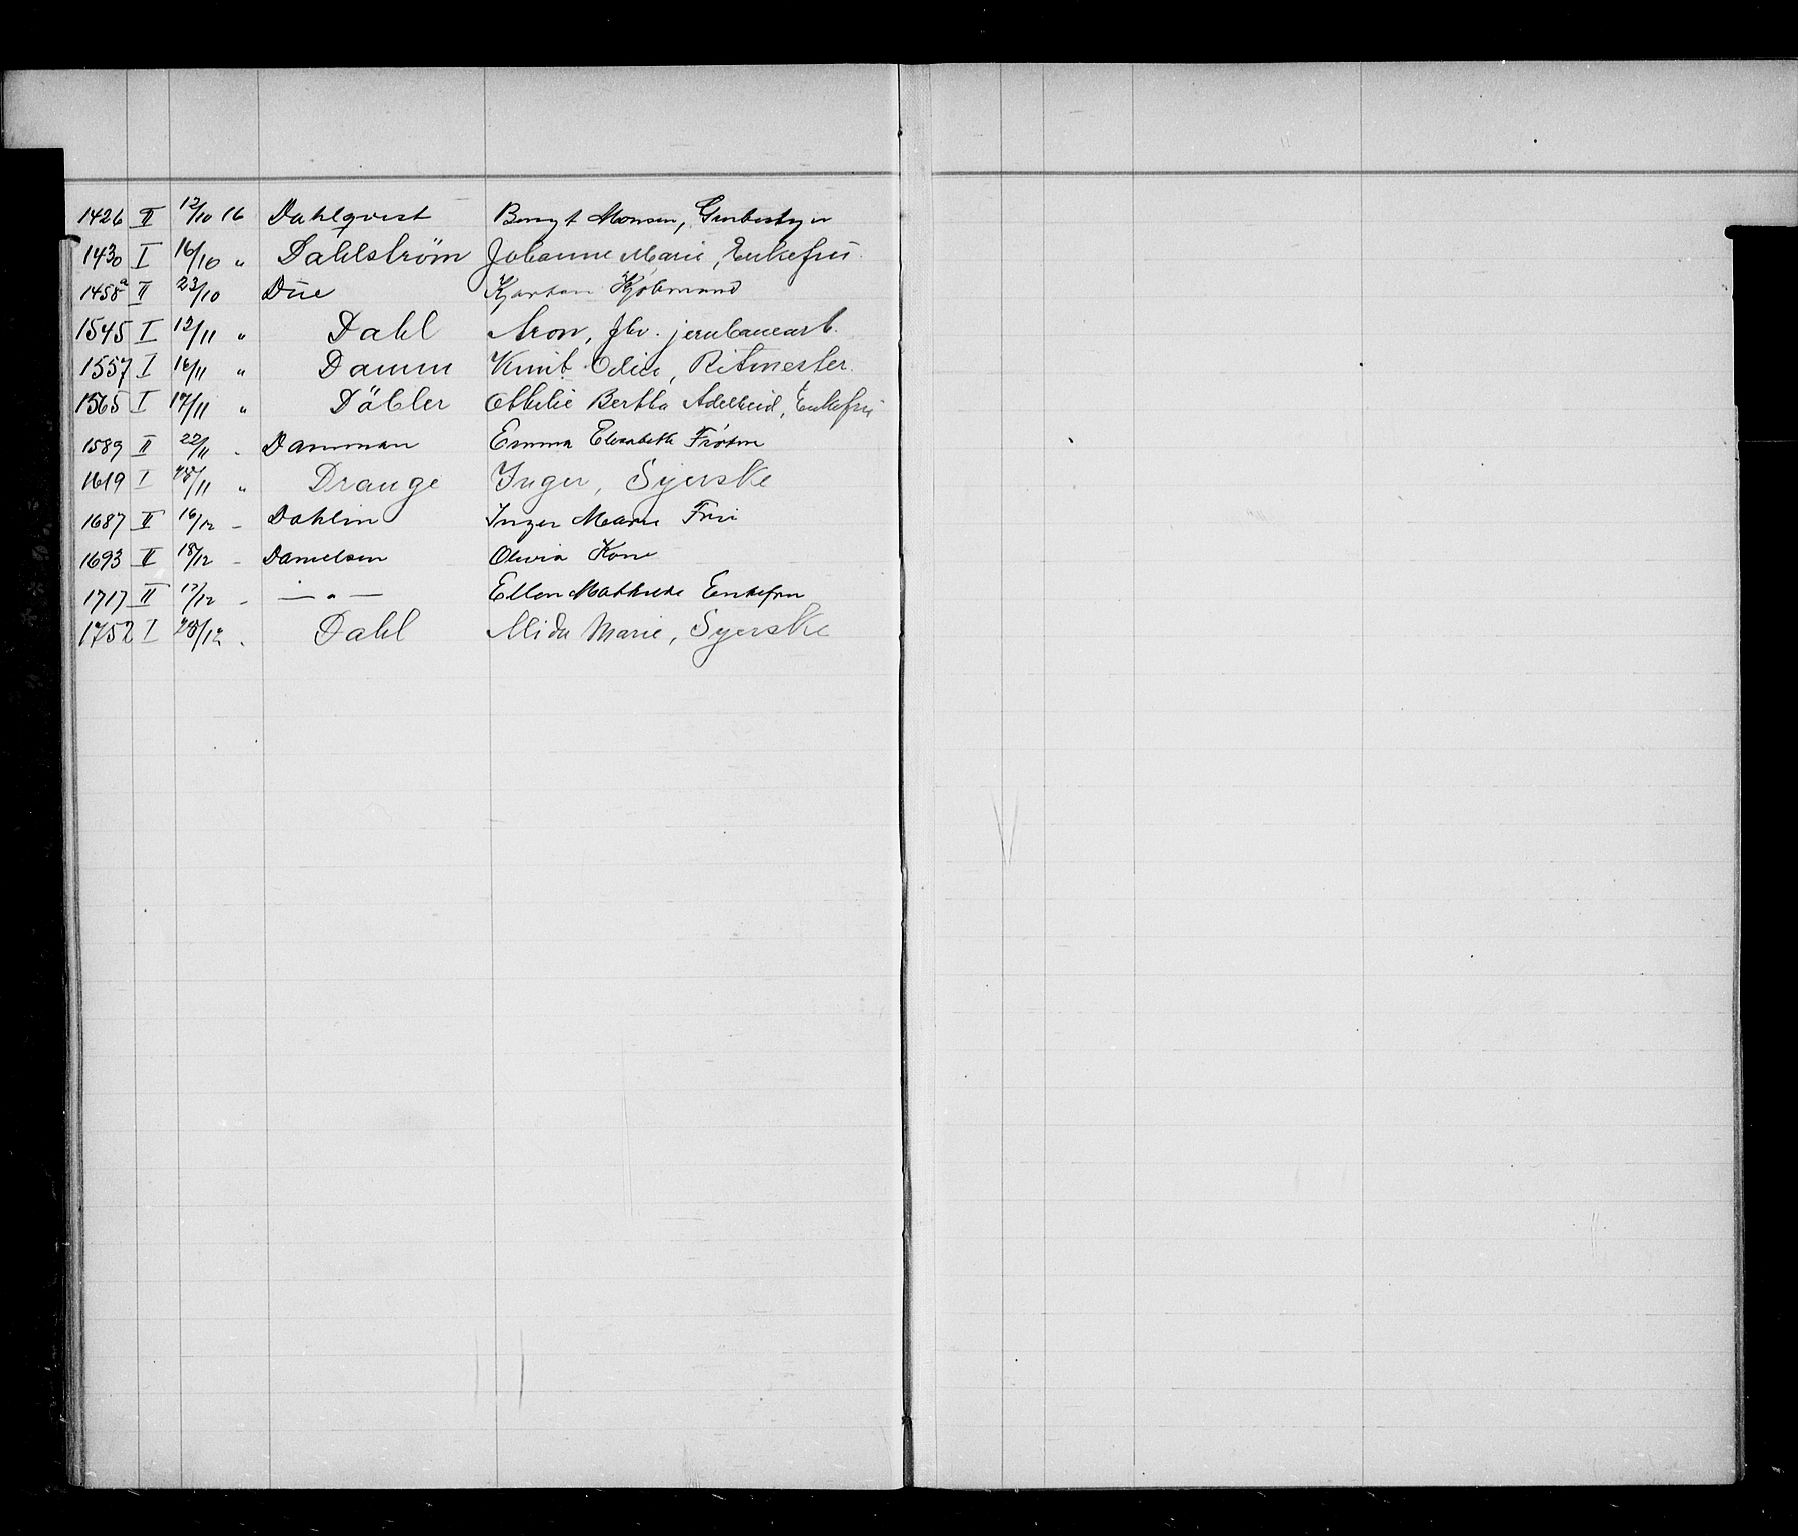 1426 II 12/10 16 Dahlqvist Bengt Monsen, Grubestyer
1430 I 16/10 " Dahlström Johanne Marie, Enkefrü
1458a II 23/10 Düe Kjartan Kjøbmand
1545 I 12/11 " Dahl Aron, fhv. jernbanearb.
1557 I 16/11 " Damm Knut, Ritmester.
1565 I 17/11 " Däbler Ottilie Bertha Adelheid, Enkefrü
1589 II 22/11 - Damman Emma Elisabeth Frøken
1619 I 28/11 " Drange Inger, Syerske
1687 II 16/12 - Dahlin Inger Marie Frü
1693 II 18/12 - Danielsen Olivia Kone
1717 II 17/12 - — " — Ellen Mathilde Enkefru
1752 I 28/12 - Dahl Alida Marie, Syerske